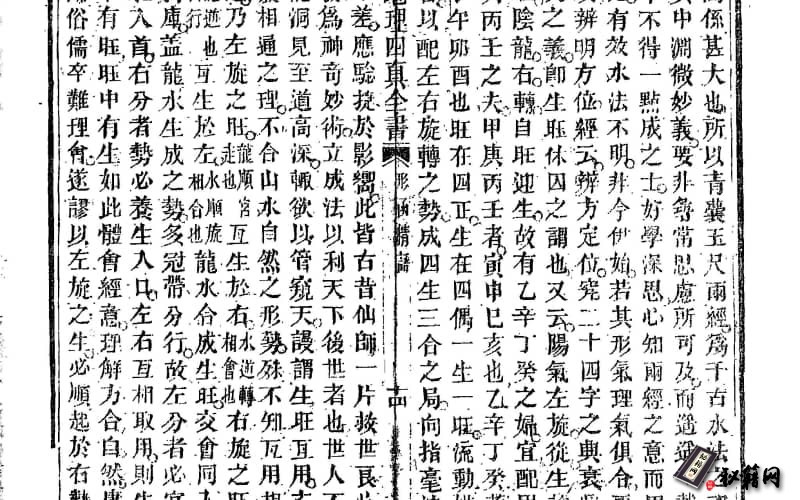 關係甚大也所以青囊玉尺兩經爲千古水法
其中淵微妙義要非尋常思慮所可及而迺延
不得一點成之士好學深思心知兩經之意而
之有效水法不明非今伊始若其形氣理氣俱合
辨明方位經云辨方定位究二十四字之興衰
之義卽生旺休囚之謂也又云陽氣左旋從生
陰龍右轉自旺迎生故有乙辛丁癸之婦宜配
丙壬之夫甲庚丙壬者寅申巳亥也乙辛丁癸
午卯酉也旺在四正生在四偶一生一旺流動
以配左右旋轉之勢成四生三合之局向指毫
地理四真全書 形 十四
差應驗捷於影響此皆古昔仙師一片救世艮
爲神奇妙術立成法以利天下後世者也世人不
洞見至道高深輒欲以管窺天謾謂生旺互用
相通之理不合山水自然之形勢殊不知互用
乃左旋之旺龍順走也宮互生於右水逆轉相會也右旋之
逆也互生於左水順旋相合也龍水合成生旺交會同
庫蓋龍水生成之勢多冠帶分行故左分者必
入首右分者勢必養生入口左右互相取用則生
有旺旺中有生如此體會經意理解方合自然
俗儒卒難理會遂謬以左旋之生必順起於右
秘籍网